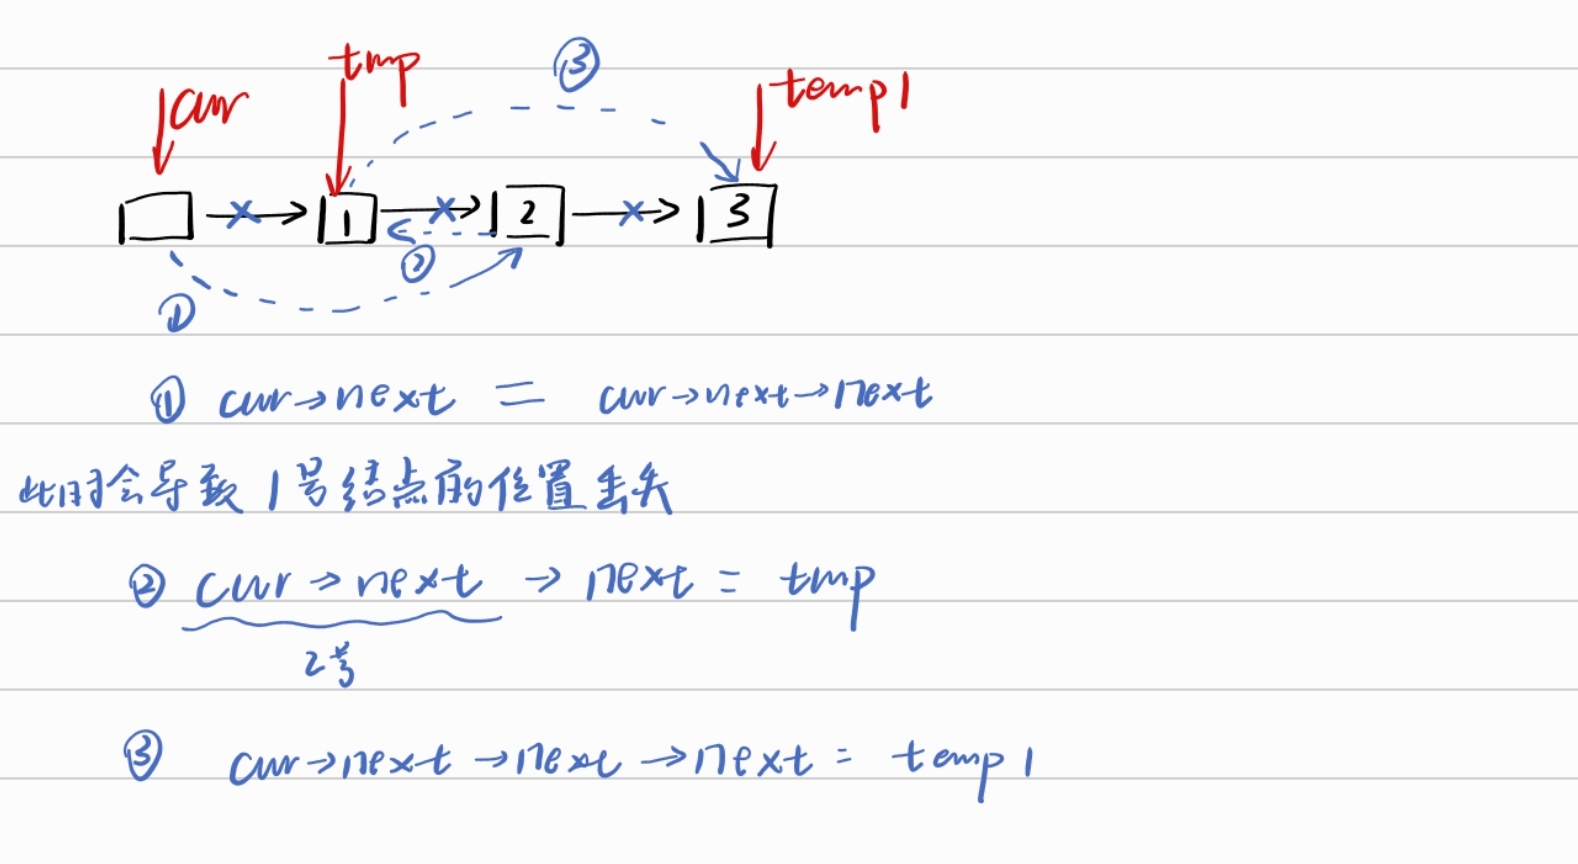 cur tmp ③ temp1
1 2 3
②
①
① cur→next = cur→next→next
此时会导致1号结点的位置丢失
② cur→next→next = tmp
2号
③ cur→next→next→next = temp1